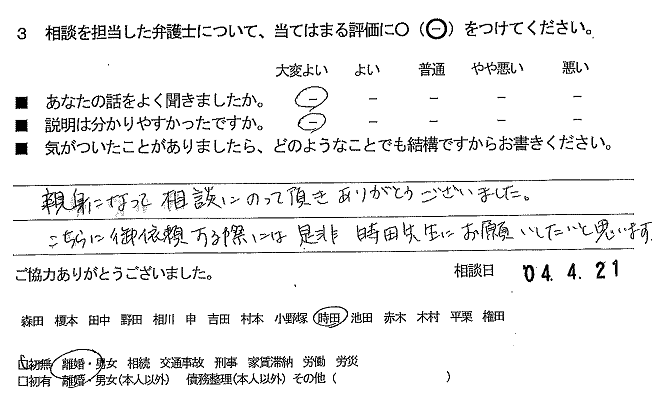 3 相談を担当した弁護士について、当てはまる評価に○（㊀）をつけてください。
大変よい よい 普通 やや悪い 悪い
■ あなたの話をよく聞きましたか。 － － － － －
■ 説明は分かりやすかったですか。 － － － － －
■ 気がついたことがありましたら、どのようなことでも結構ですからお書きください。
親身になって相談にのって頂きありがとうございました。
こちらに御依頼する際には是非 時田先生にお願いしたいと思います
ご協力ありがとうございました。 相談日 04.4.21
森田 榎本 田中 野田 相川 申 吉田 村本 小野塚 時田 池田 赤木 木村 平栗 権田
□初無 離婚・男女 相続 交通事故 刑事 家賃滞納 労働 労災
□初有 離婚・男女(本人以外) 債務整理(本人以外) その他（ ）